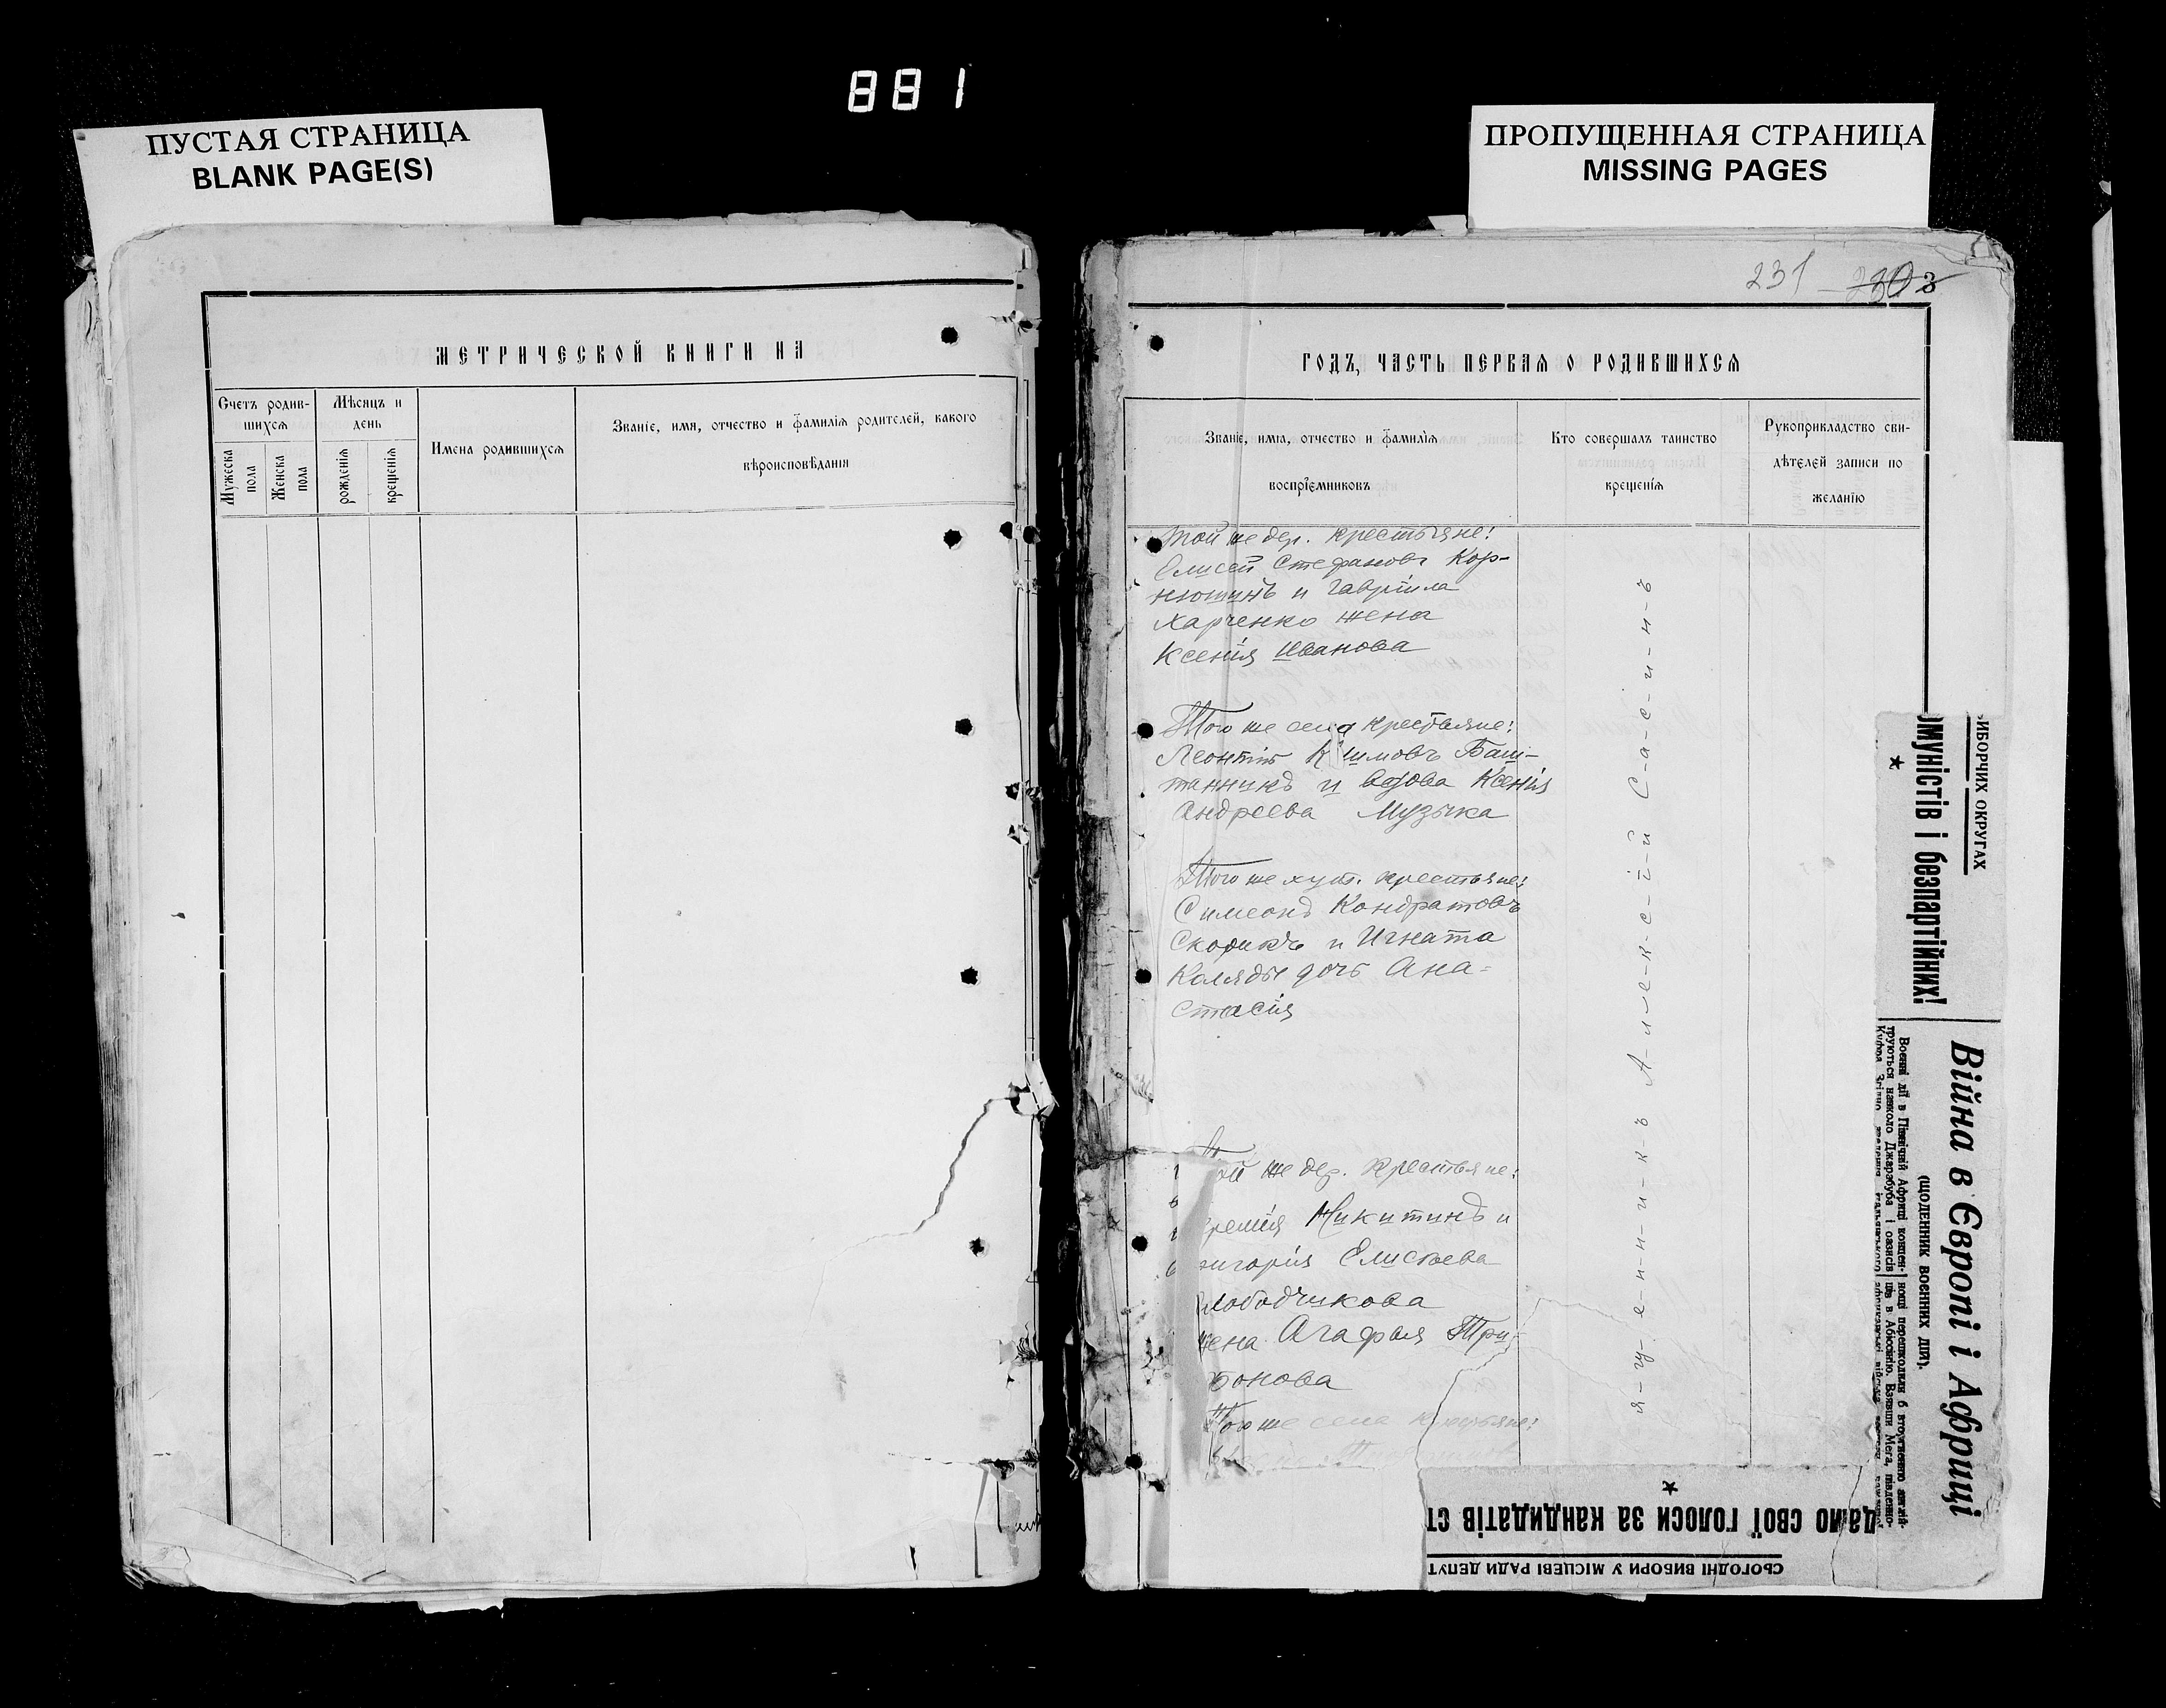 881
ПУСТАЯ СТРАНИЦА
BLANK PAGE(S)
ПРОПУЩЕННАЯ СТРАНИЦА
MISSING PAGES
МЕТРИЧЕСКОЙ КНИГИ НА
Счетъ родив-
шихсѧ
Мѣсяцъ и
день
Имена родившихсѧ
Званіе, имя, отчество и фамиліѧ родителей, какого
вѣроисповѣданіѧ
Мужеска
пола
Женска
пола
рожденіѧ
крещеніѧ
231
ГОДЪ, ЧАСТЬ ПЕРВАѦ О РОДИВШИХСѦ
Званіе, имѧ, отчество и фамиліѧ
воспріемниковъ
Кто совершалъ таинство
крещеніѧ
Рукоприкладство сви-
дѣтелей записи по
желанію
Той же дер. крестьяне:
Елисей Стефановъ Кор-
нюшинъ и Гавріила
Харченко жена
Ксенія Иванова
Того же села крестьяне:
Леонтій Климовъ Баш-
танникъ и вдова Ксенія
Андреева Музыка
Того же хут. крестьяне:
Симеонъ Кондратовъ
Скорикъ и Игната
Коляды дочь Ана-
стасія
ой же дер. крестьяне:
ремія Никитинъ и
игорія Елисѣева
лободчикова
жена Агафья Три-
бонова
Того же села крестьяне:
я-щ-е-н-н-и-к-ъ А-л-е-к-с-і-й С-а-с-і-н-ъ
ИБОРЧИХ ОКРУГАХ
омуністів і безпартійних!
Війна в Європі і Африці
(ЩОДЕННИК ВОЄННИХ ДІЙ).
Воєнні дії в Північній Африці концен-
труються навколо Джарабуба і оазисів
ноші перешкодили б вторгненню англій-
ців в Абіссінію. Взявши Мега, південно-
дамо свої голоси за кандидатів ст
СЬОГОДНІ ВИБОРИ У МІСЦЕВІ РАДИ ДЕПУТ